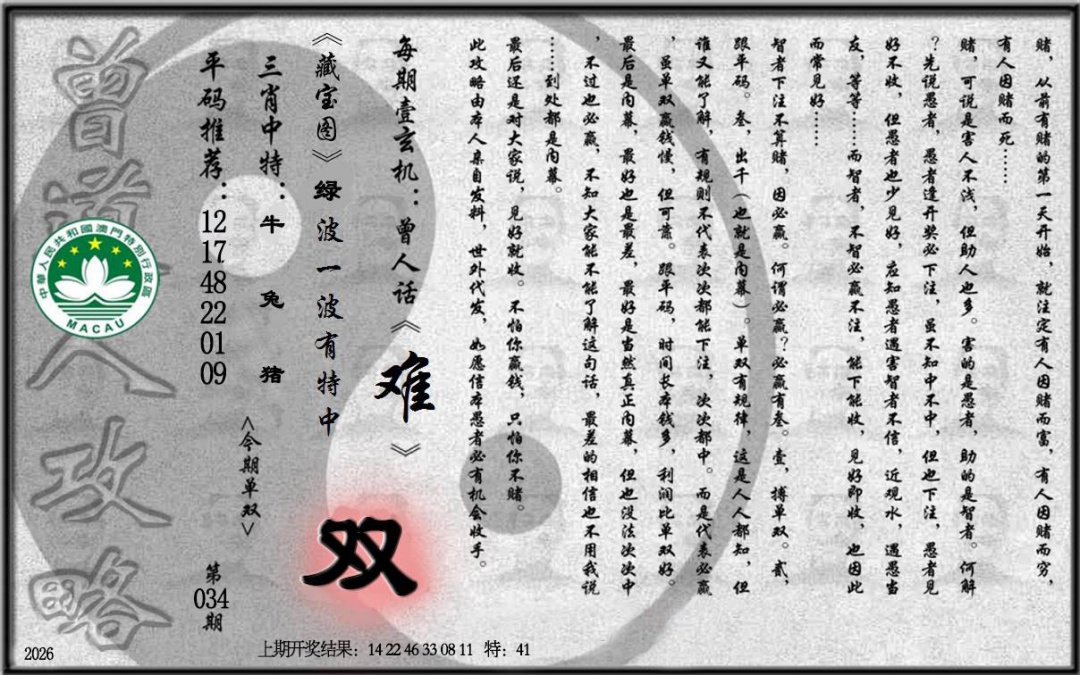 赌，从前有赌的第一天开始，就注定有人因赌而富，有人因赌而穷，
有人因赌而死……
赌，可说是害人不浅，但助人也多。害的是愚者，助的是智者。何解
？先说愚者，愚者逢开奖必下注，虽不知中不中，但也下注，愚者见
好不收，但愚者也少见好，应知愚者遇害智者不信，近观水，遇愚当
友，等等……而智者，不智必赢不注，能下能收，见好即收，也因此
而常见好……
智者下注不算赌，因必赢。何谓必赢？必赢有叁。壹，搏单双。贰，
跟平码。叁，出千（也就是内幕）。单双有规律，这是人人都知，但
谁又能了解，有规则不代表次次都能下注，次次都中。而是代表必赢
，虽单双赢钱慢，但可靠。跟平码，时间长本钱多，利润比单双好。
最后是内幕，最好也是最差，最好是当然真正内幕，但也没法次次中
，不过也必赢，不知大家能不能了解这句话，最差的相信也不用我说
……到处都是内幕。
最后还是对大家说，见好就收。不怕你赢钱，只怕你不赌。
此攻略由本人亲自发料，世外代发，如愿信本愚者必有机会收手。
每期壹玄机：曾人话《难》
《藏宝图》绿波一波有特中
双
三肖中特：牛 兔 猪
<今期单双>
平码推荐：12 17 48 22 01 09
第034期
曾道人攻略
中華人民共和國澳門特別行政區
MACAU
2026
上期开奖结果：14 22 46 33 08 11 特：41